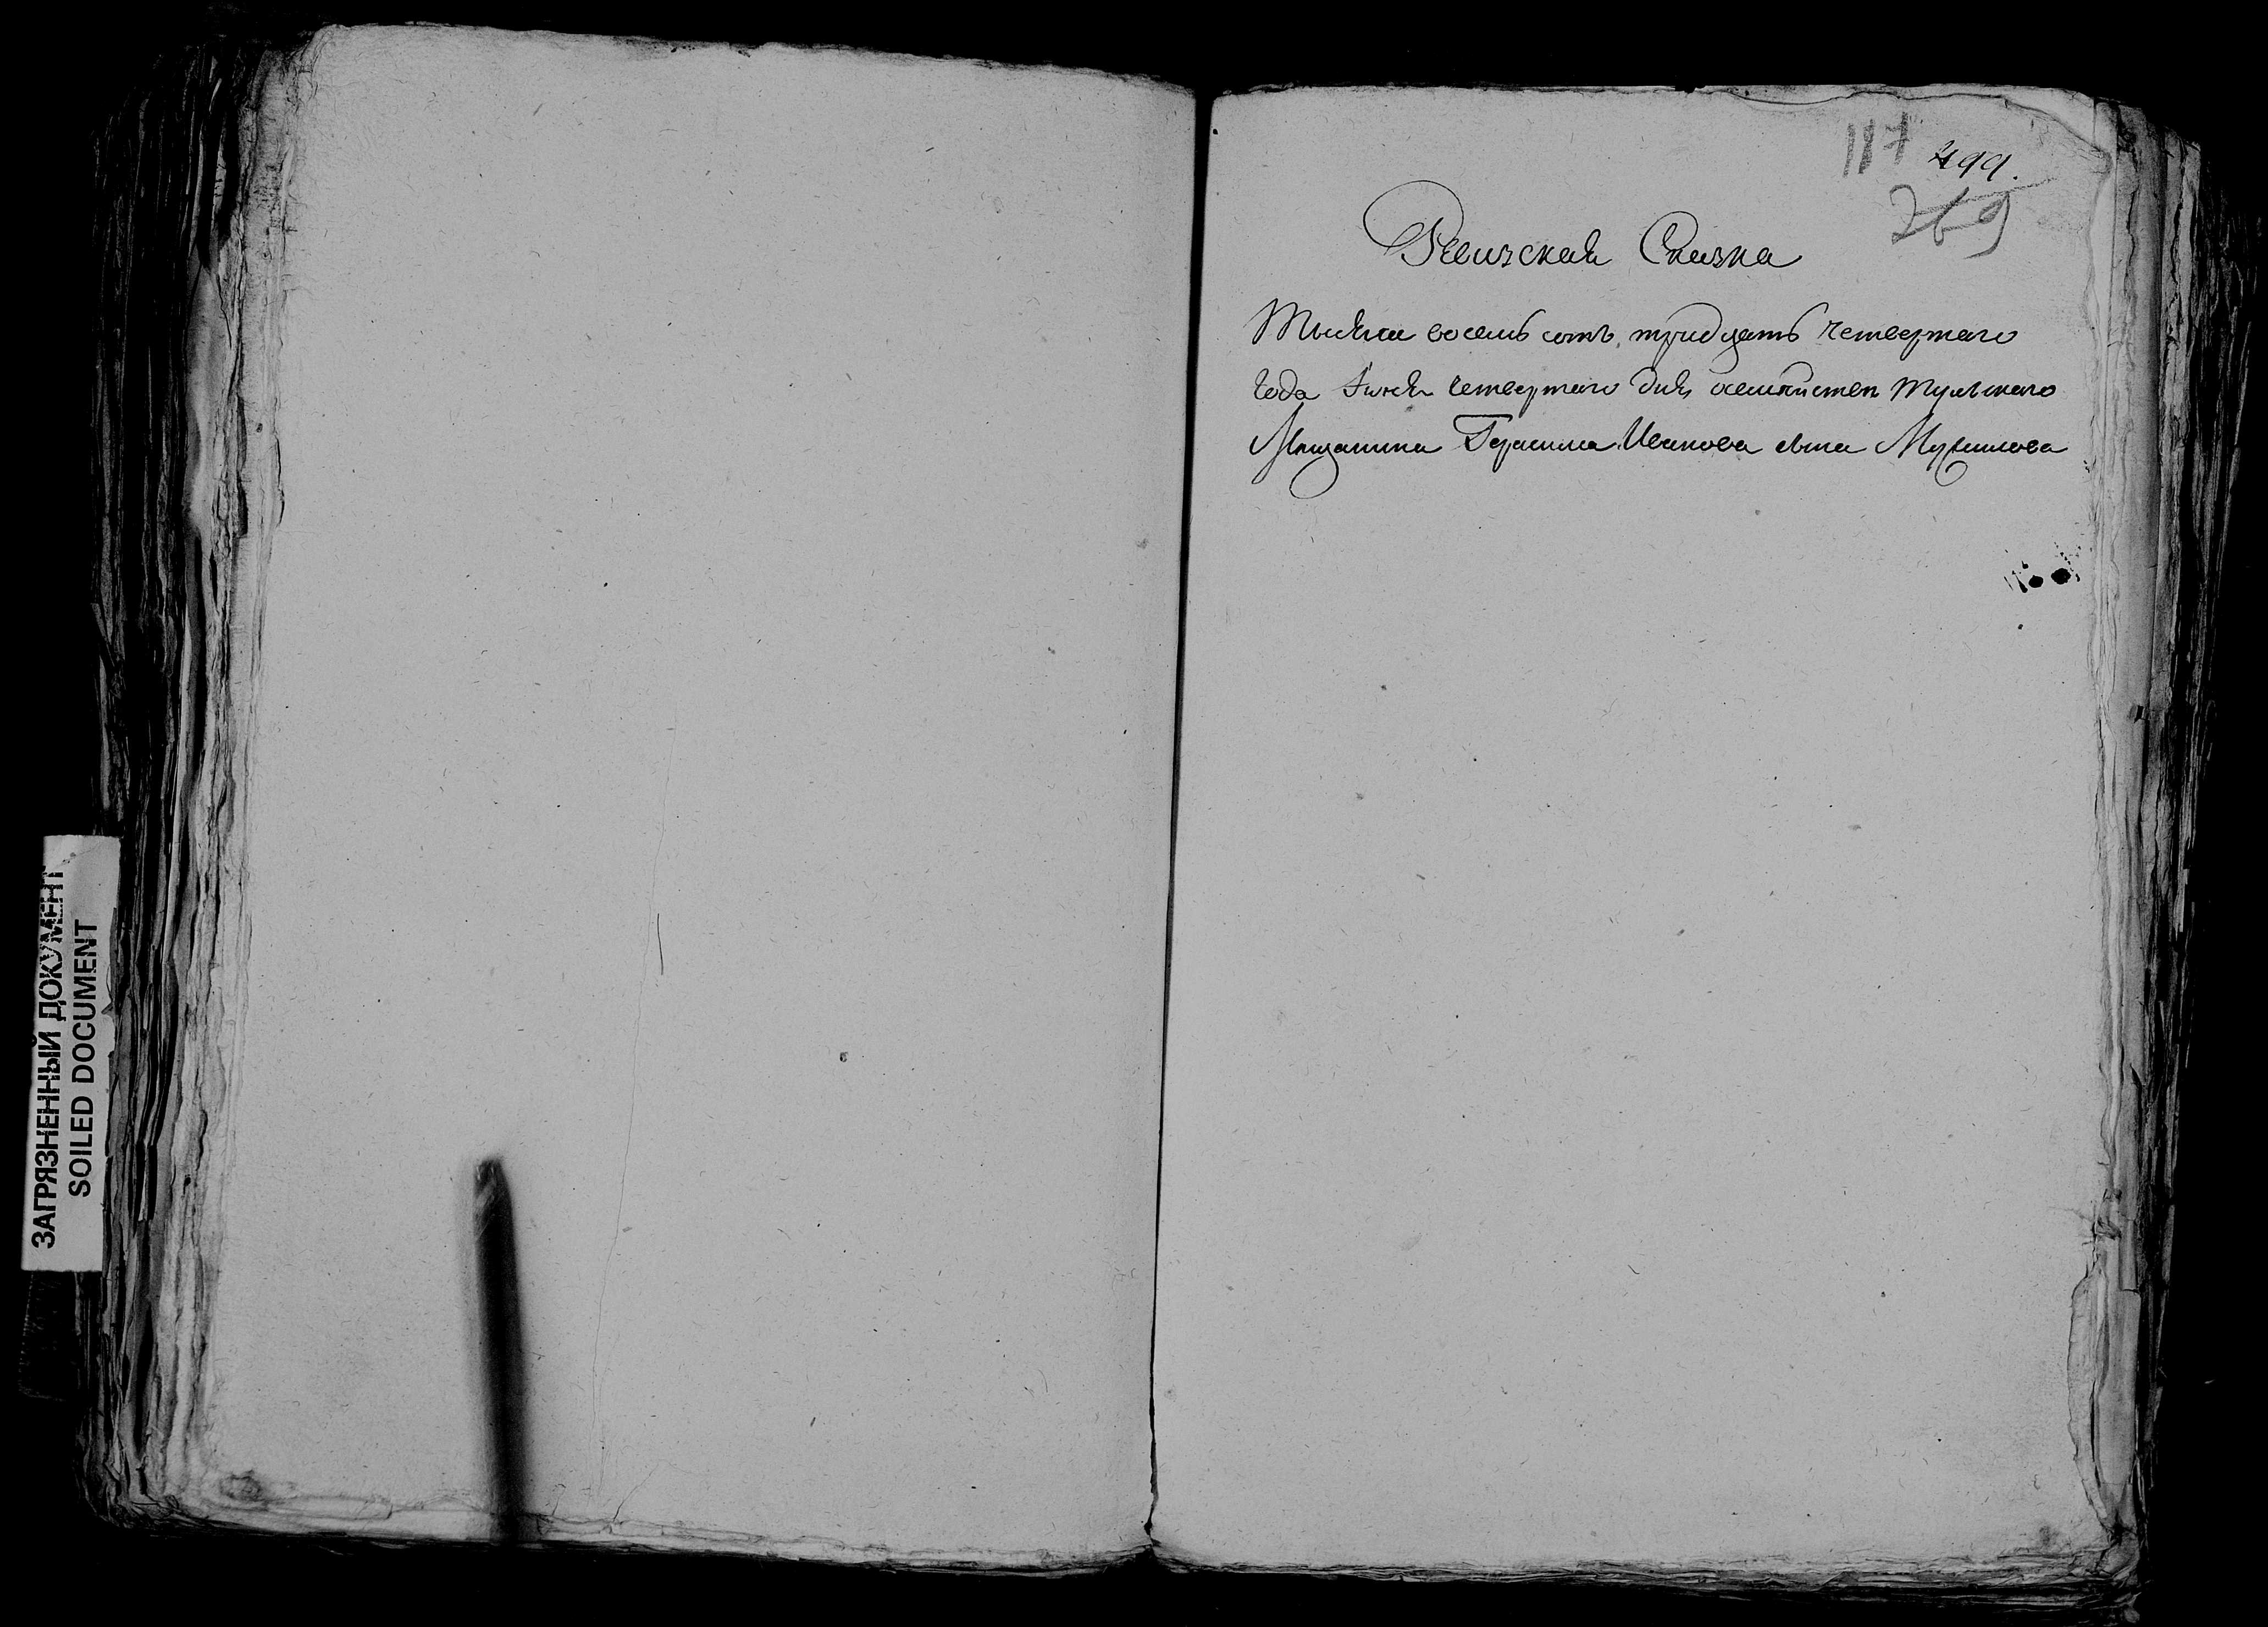 117 499.
269
Ревизская Сказка
Тысяча восемь сотъ тридцать четвертаго
Года Іюня четвертаго дня Тульскаго
Мещанина Герасима Иванова сына
ЗАГРЯЗНЕННЫЙ ДОКУМЕНТ
SOILED DOCUMENT